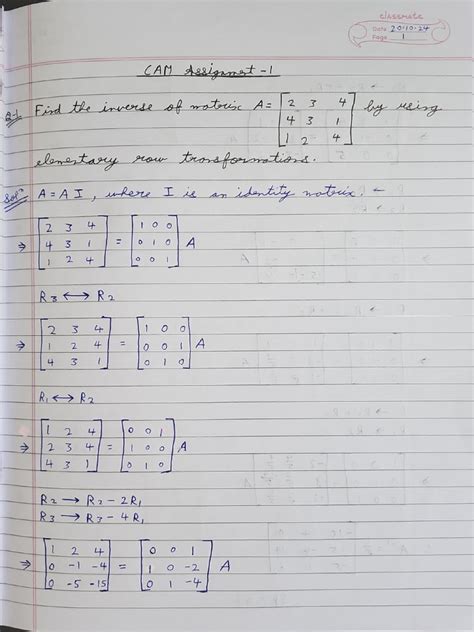 classmate
Date 20-10-24
Page 1
CAM Assignment -1
Q-1 Find the inverse of matrix A = [2 3 4
4 3 1
1 2 4] by using
elementary row transformations.
Solⁿ A = A I, where I is an identity matrix. ←
⇒ [2 3 4
4 3 1
1 2 4] = [1 0 0
0 1 0
0 0 1] A
R3 ↔ R2
⇒ [2 3 4
1 2 4
4 3 1] = [1 0 0
0 0 1
0 1 0] A
R1 ↔ R2
⇒ [1 2 4
2 3 4
4 3 1] = [0 0 1
1 0 0
0 1 0] A
R2 → R2 - 2R1
R3 → R3 - 4R1
⇒ [1 2 4
0 -1 -4
0 -5 -15] = [0 0 1
1 0 -2
0 1 -4] A